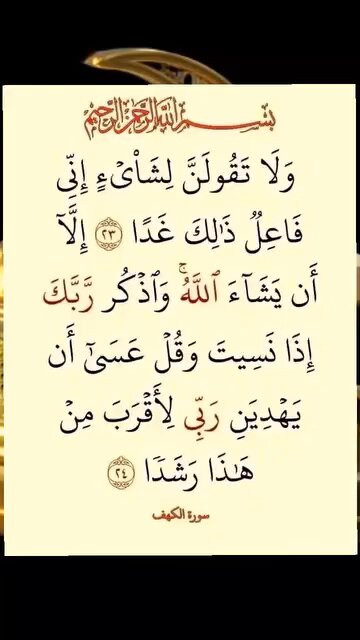 بِسْمِ اللَّهِ الرَّحْمَٰنِ الرَّحِيمِ
وَلَا تَقُولَنَّ لِشَا۟یۡءٍ إِنِّی
فَاعِلٌ ذَٰلِكَ غَدًا ٢٣ إِلَّاۤ
أَن يَشَاۤءَ ٱللَّهُۚ وَٱذۡكُر رَّبَّكَ
إِذَا نَسِيتَ وَقُلۡ عَسَىٰۤ أَن
يَهۡدِيَنِ رَبِّی لِأَقۡرَبَ مِنۡ
هَـٰذَا رَشَدࣰا ٢٤
سورة الكهف